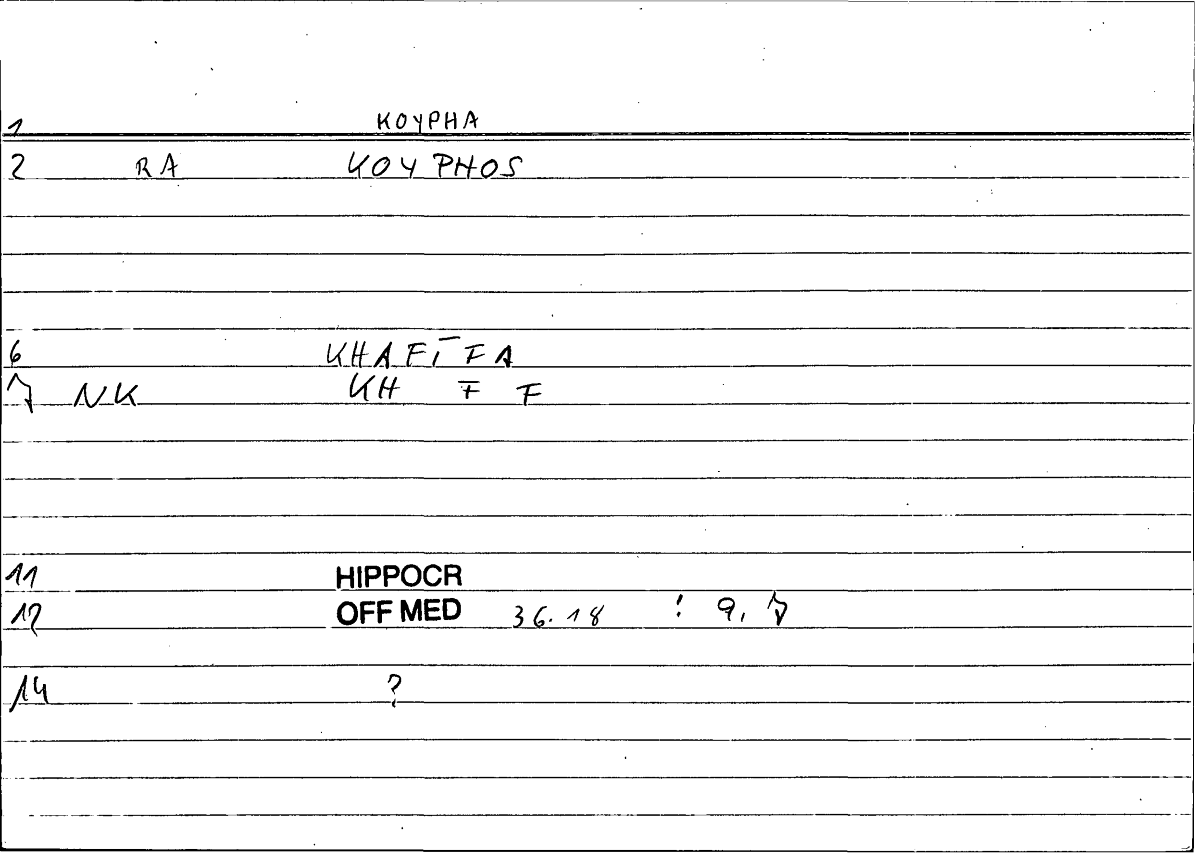 1 KOYPHA
2 RA KOYPHOS
6 KHAFĪFA
7 NK KH F F
11 HIPPOCR
12 OFF MED 36.18 : 9, 7
14 ?